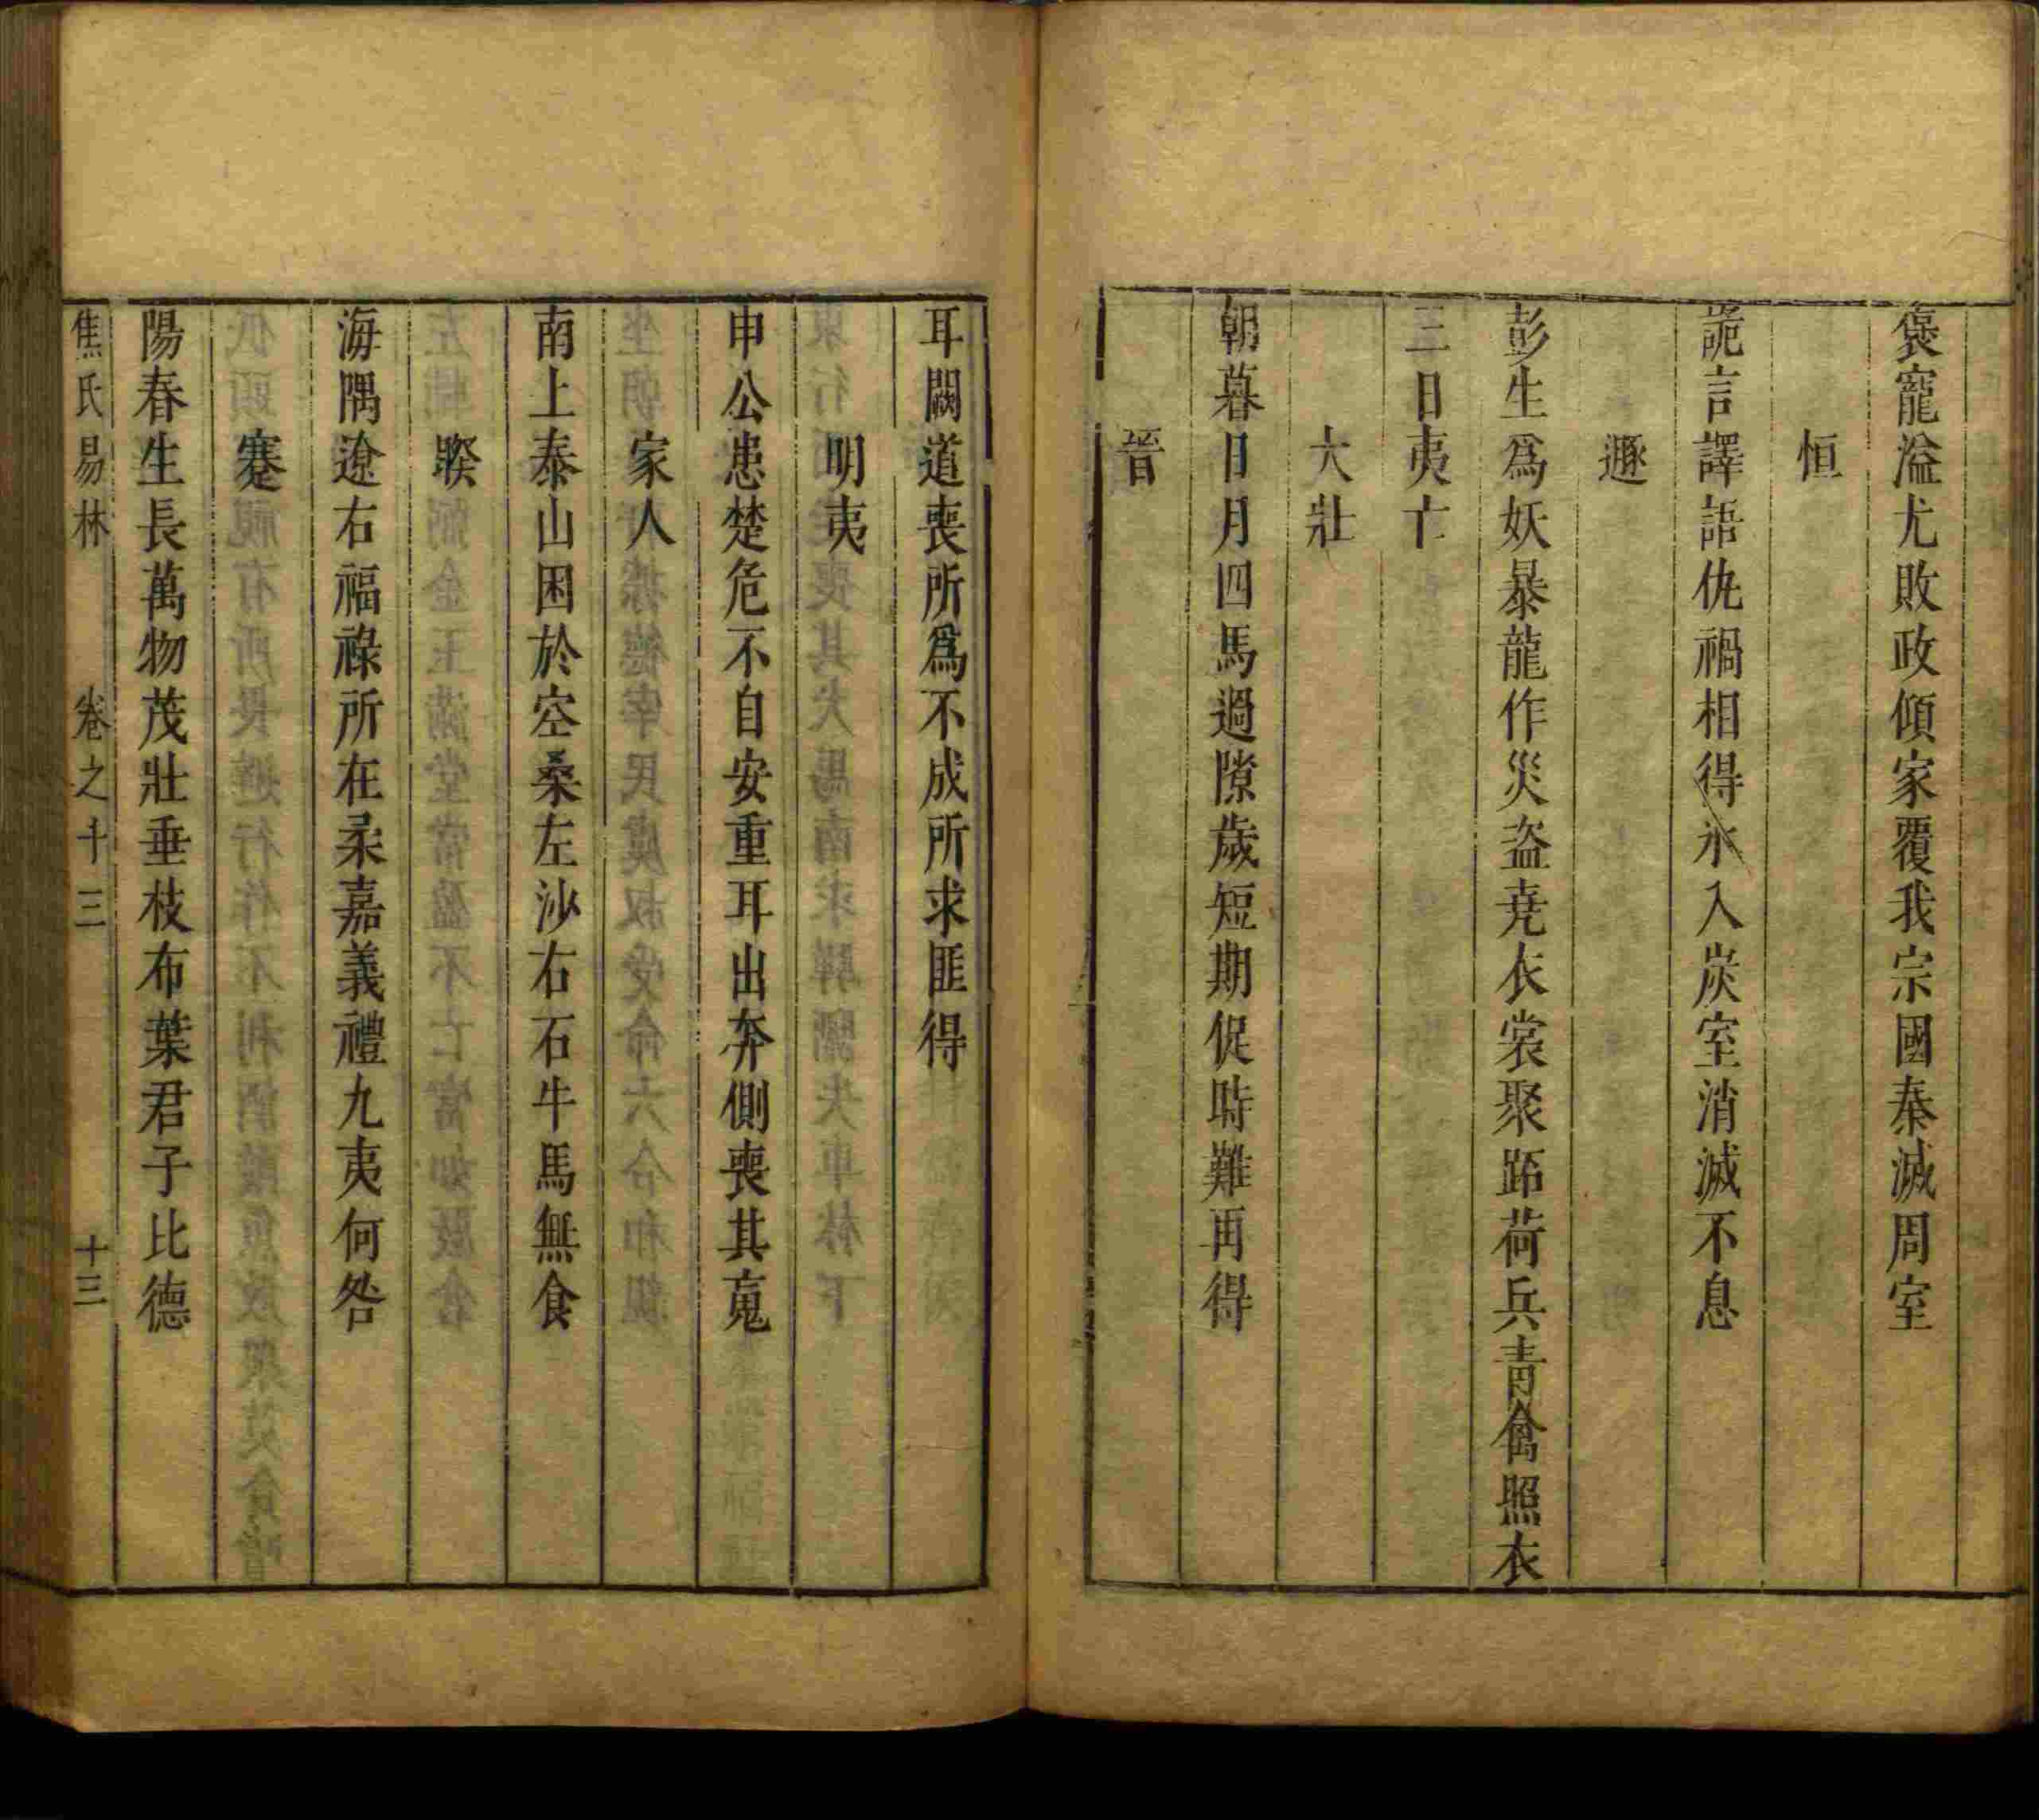 褒寵溢尤敗政傾家覆我宗國秦滅周室
恒
詭言譯語仇禍相得氷入炭室消滅不息
遯
彭生爲妖暴龍作災盗堯衣裳聚跖荷兵青禽照衣
三日夷亡
大壯
朝暮日月四馬過隙歲短期促時難再得
晉
耳闕道喪所爲不成所求匪得
明夷
申公患楚危不自安重耳出奔側喪其䰟
家人
南上泰山困於空桑左沙右石牛馬無食
睽
海隅遼右福祿所在柔嘉義禮九夷何咎
蹇
陽春生長萬物茂壯垂枝布葉君子比德
焦氏易林 卷之十三 十三